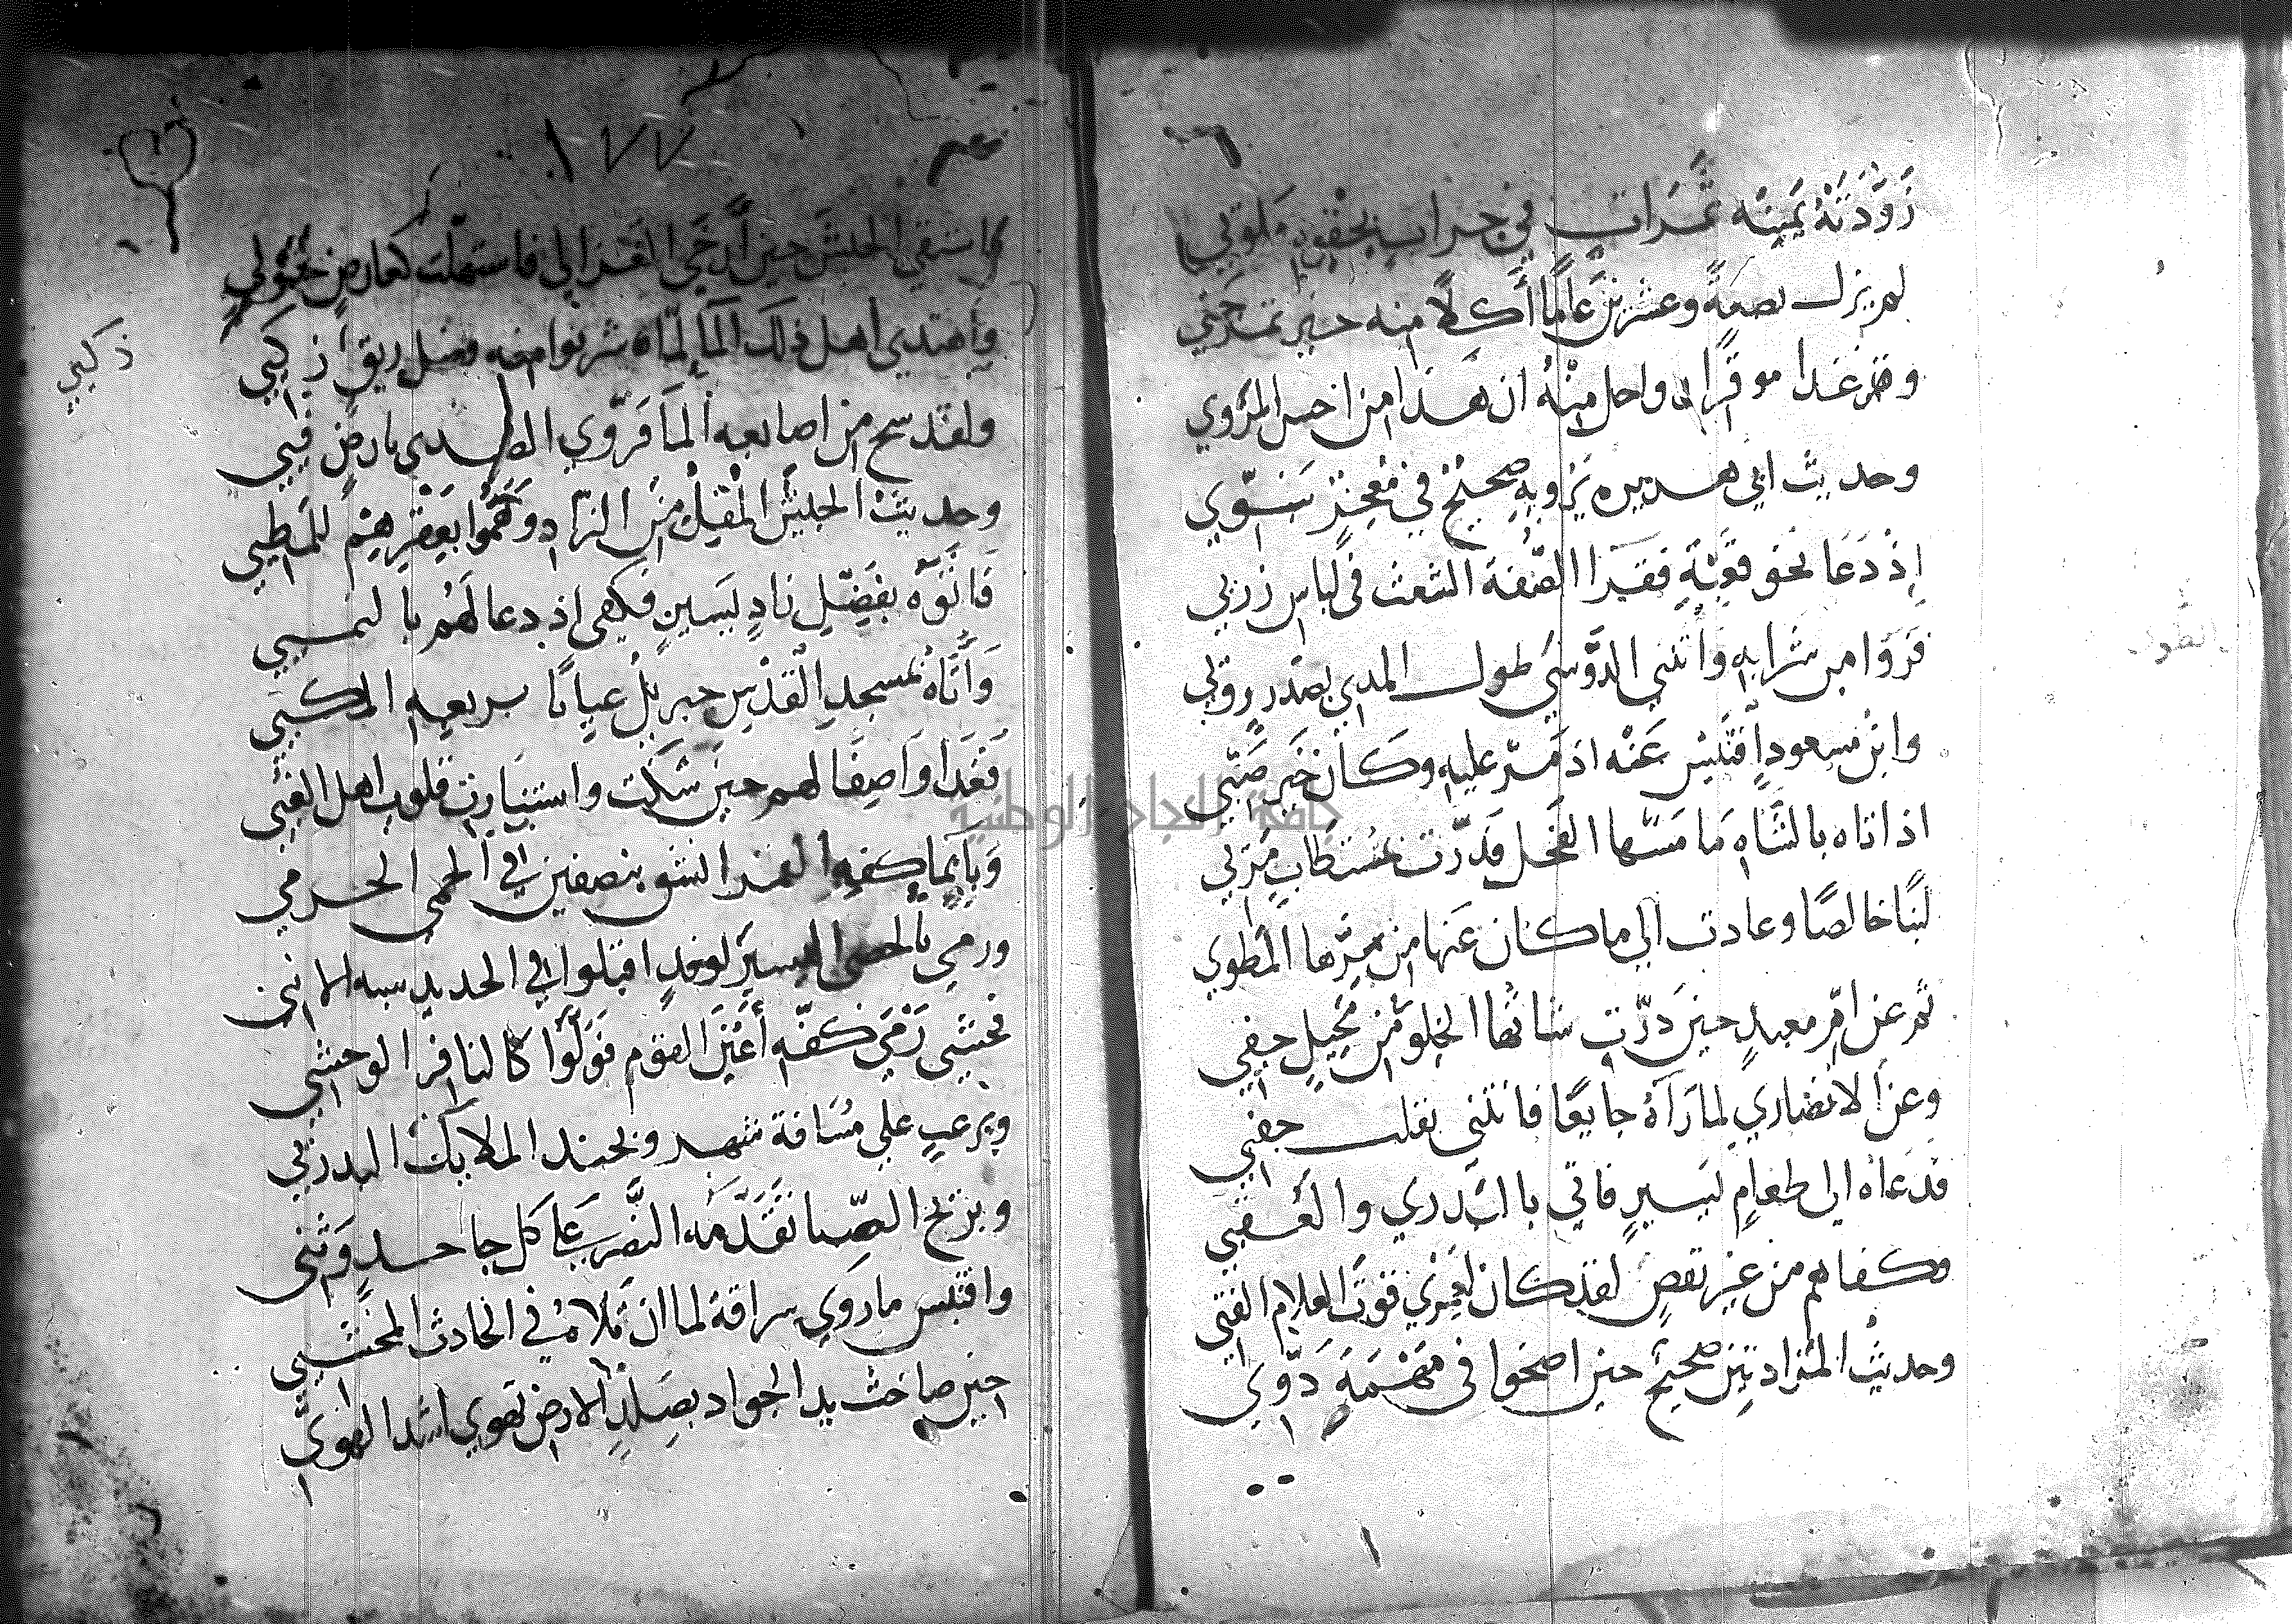 زَوَّدَتْهُ يَمِينُه تَمَرَاتٍ في جراب بحقوه مَلوِيّ
لم يزل بضعةً وعشرين عامًا أكلًا منه حين تمر جني
وغدا موقرًا واحل مِنْهُ ان هَذا من احسن المَروي
وحديث ابي هريره يَرْوِيهِ صحيح في مُعجِز سَنَوّي
إذ دَعَا نحو قَعْبَةٍ فقرا الصُّفة الشعث في لباس زري
فَرَوَا من شرابِهِ وأنثنى الدَّوسَي طول المدى بصَدرٍ روي
وابن مسعودٍ اقتبس عَنْه اذ مَرّ عليهِ وكان خَير صَبّي
اذ اتاه بالشاهِ مَا مَسّها الفحل فَدَرّت بمُستطابٍ مَرِيّ
لبنًا خالصًا وعادت الى ما كان عَنها من جرها المطوي
ثم عن امّ معبدٍ حين دَرّت شاتُها الخِلو من مُحيلٍ جفي
وعن الانصاري لما رَآهُ جايعًا فانثنى بقلب حفي
فدَعَاهُ الى طعامٍ يَسيرٍ فاتي با الدري والعقبي
وكفاهم من غير نقصٍ لقد كان لعمري قوت الغلام الفتي
وحديث المزادتين صحيح حين اضحوا في مَهْمَهٍ دَوّي
١٧٧
واستقي الجيش حين أرخي العَزالي فاستهلت كعارضٍ
واهتدي اهل ذلك المآ لمّاه شربوا منه فضل ريق ذكي
ذكي
ولقد سح من اصابعه المآ فَرَوّي الصدي بارض في
وحديث الجيش المُقِلّ من الزاد وهَمُّوا بعَقرِهِم للمَطِي
فَاتَوْهُ بفَضْلِ زادٍ يَسيرٍ فكفى اذ دعا لَهُم بالنمي
وَأتاهُ بمسجدِ القُدْسِ جبريل عيانًا بربعِهِ المكي
فَغَدَا وَاصِفًا لهم حينَ شَكّت واسترابت قلوب اهل الغي
وَبإيمآ كفهِ القمر انشق بنصفين في الحمى الحرمي
ورمي بالحصى اليسير لوفدٍ اقبلوا في الحديد
فحَشَى رَمْيَ كفّه أعيُن القوم فَوَلّوْا كالنافر الوحشي
وبرعبٍ علي مُسَافة شهر وبجند الملايك البدري
وبريح الصّبا تَقَدّمَه النّصر على كل جاحدٍ وَثني
واقتبس ما روي سراقة لما ان تلاهُ في الحادث المخشي
حين صاخت يدا الجواد بصَلْدِ الارض تهوي اشد الهويّ
جامعة النجاح الوطنية